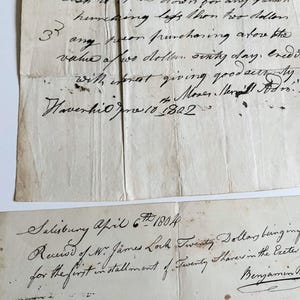 down for any person
purchasing less than two dollars
3d any person purchasing above the
value of two dollars sixty days credit
with interest giving good security
Moses Merrill Adm
Haverhill June 10th 1802
Salisbury April 6th 1804
Received of Mr James Lock Twenty Dollars being in
for the first installment of Twenty Shares in the Exeter
Benjamin